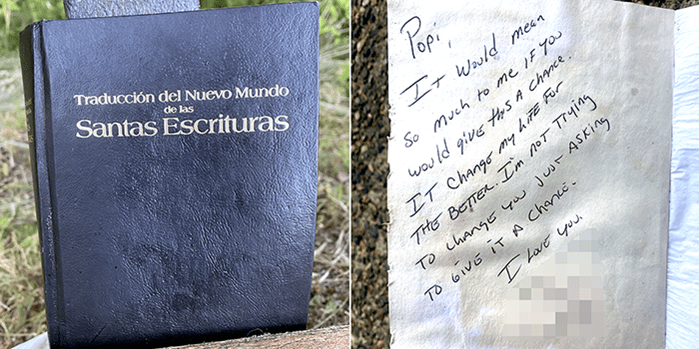 Traducción del Nuevo Mundo
de las
Santas Escrituras
Popi,
It would mean
so much to me if you
would give this a chance.
It change my life for
the better. I'm not trying
to change you just asking
to give it a chance.
I love you.